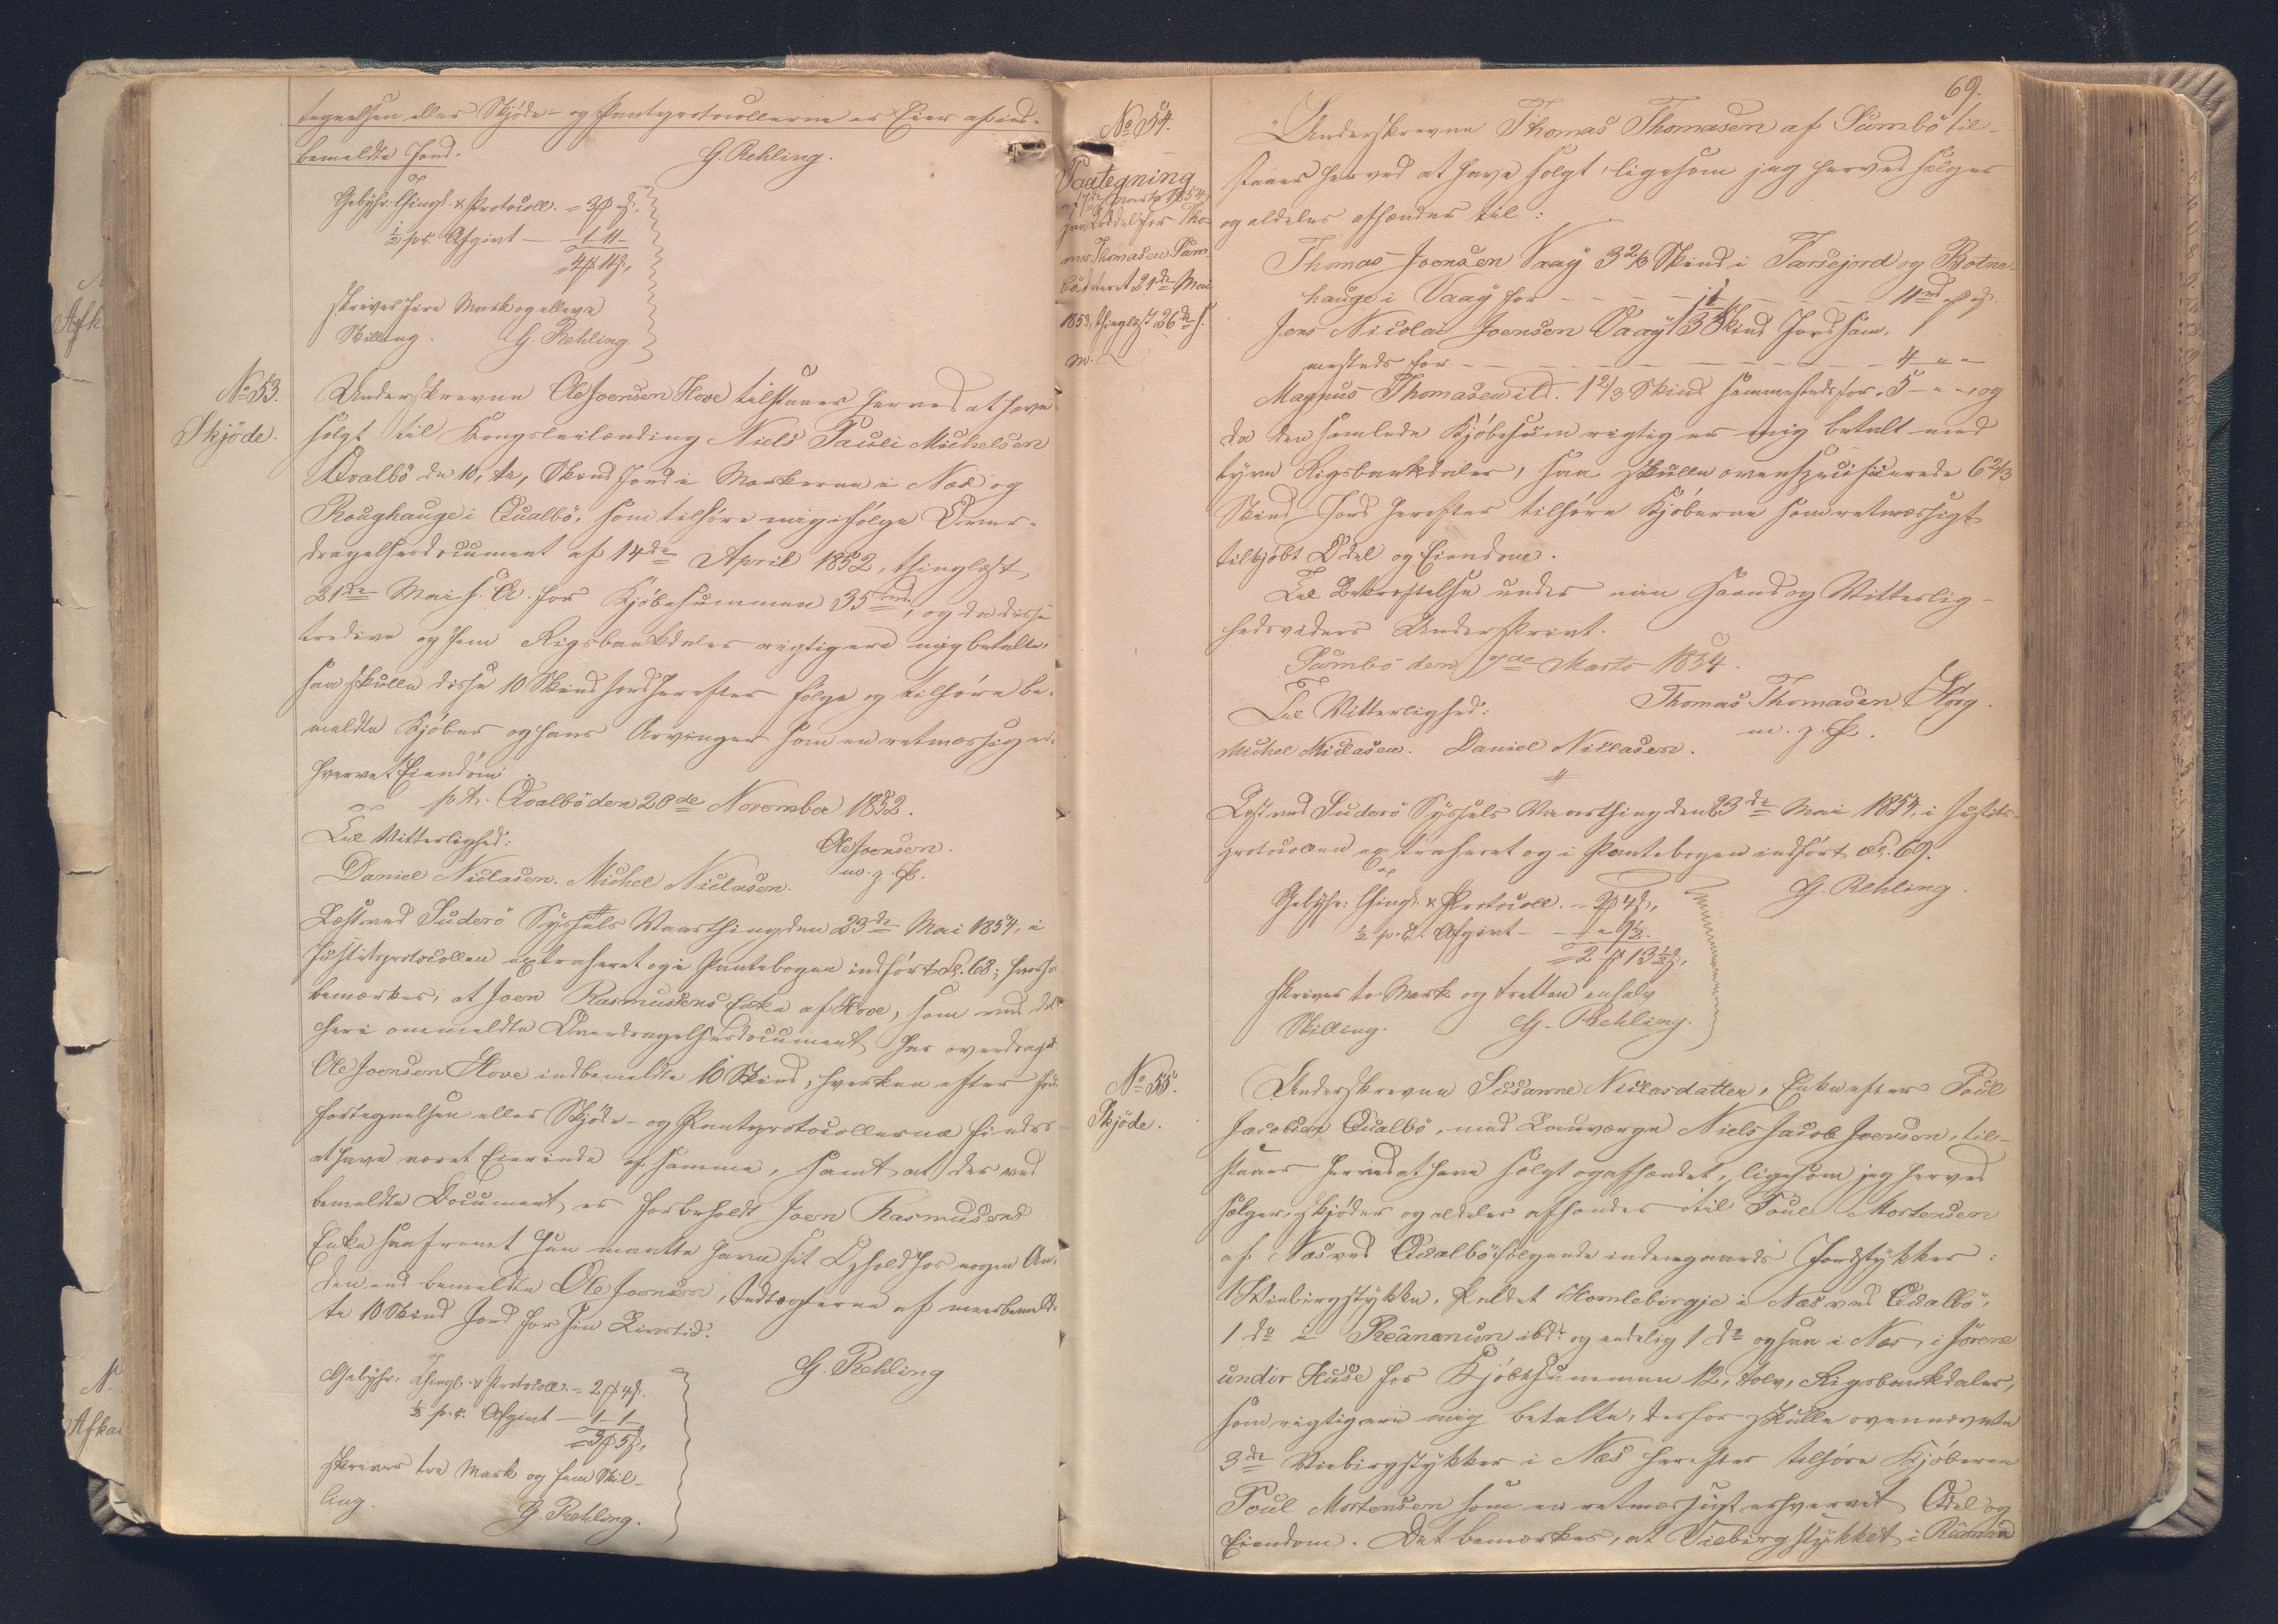 tegnelsen eller Skjøde- og Panteprotocollerne er Eier af ind-
bemeldte Jord.
G. Rehling.
Gebyhr: Thingl. & Protocoll. = 3 ƒ " ß.
½ p.C. Afgivt — 1 - 11 -
= 4 ƒ 11 ß,
skriver fire Mark og elleve
Skilling. G. Rehling.
No 53.
Skjöde.
Underskrevne Ole Joensen Hove tilstaaer herved at have
solgt til Kongsleilænding Niels Pauli Michelsen
Qvalbö de 10, ti, Skind Jord i Markerne i Næs og
Roughauge i Qualbö, som tilhöre mig ifölge Over-
dragelsesdocument af 14de April 1852, thinglæst
21de Mai s. A. for Kjöbesummen 35 rd, og da disse
tredive og fem Rigsbankdaler rigtig ere mig betalte,
saa skulle disse 10 Skind Jord herefter fölge og tilhöre be-
meldte Kjöber og hans Arvinger som en retmæssig er-
hvervet Eiendom.
p.t. Qvalbö den 20de November 1852.
Til Vitterlighed:
Ole Joensen.
m. f. P.
Daniel Niclasen. Michel Niclasen.
Læst ved Suderö Syssels Vaarthing den 23de Mai 1854, i
Justitsprotocollen extraheret og i Pantebogen indfört fol. 68; hvorhos
bemærkes, at Joen Rasmussens Enke af Hove, som ved det
heri ommeldte Overdragelsesdocument har overdraget
Ole Joensen Hove indbemeldte 10 Skind, hverken efter Jord-
fortegnelsen eller Skjöde- og Panteprotocollerne findes
at have været Eierinde af samme, samt at der ved
bemeldte Document er forbeholdt Joen Rasmussens
Enke saafremt hun maatte have sit Ophold hos nogen An-
den end bemeldte Ole Joensen, Indtægterne af meerbemeld-
te 10 Skind Jord for sin Livstid.
G. Rehling
Gebyhr: Thingl. & Protocoll. = 2 ƒ 4 ß.
½ p.C. Afgivt — 1 - 1 -
= 3 ƒ 5 ß,
skriver tre Mark og fem Skil-
ling.
G. Rehling.
69.
No 54.
Paategning
af 7de Marts 1854
paa for Tho-
mas Thomasen Sum-
bö dateret 21de Mai
1853, thinglæst 26de s.
m.
Underskrevne Thomas Thomasen af Sumbö til-
staaer herved at have solgt, ligesom jeg herved sælger
og aldeles afhænder til:
Thomas Joensen Vaag 3 2/3 Skind i Tarsejord og Botne-
hauge i Vaag for - - - - - - 11 rd " ƒ " ß.
Jens Nicolai Joensen Vaag 1 1/3 Skind Jord sam-
mesteds for - - - - - - 4 " "
Magnus Thomasen ibd. 1 2/3 Skind sammesteds for 5 - " - ", og
da den samlede Kjöbesum rigtig er mig betalt med
tyve Rigsbankdaler, saa skulle ovenspecificerede 6 2/3
Skind Jord herefter tilhöre Kjöberne som retmæssigt
tilkjöbt Odel og Eiendom.
Til Bekræftelse under min Haand og Vitterlig-
hedsvidners Underskrivt.
Sumbö den 7de Marts 1854.
Til Vitterlighed:
Thomas Thomasen Hörg.
m. f. P.
Michel Niclasen. Daniel Niclasen.
Læst ved Suderö Syssels Vaarthing den 23de Mai 1854, i Justits-
protocollen extraheret og i Pantebogen indfört fol. 69.
G. Rehling.
Gebyhr: Thingl. & Protocoll. - 2 ƒ 4 ß,
½ p.C. Afgivt - - " - 9½
= 2 ƒ 13½ ß,
skriver to Mark og tretten en halv
Skilling. G. Rehling.
No 55.
Skjöde.
Underskrevne Susanne Niclasdatter, Enke efter Poul
Jacobsen Qualbö, med Laugværge Niels Jacob Joensen, til-
staaer herved at have solgt og afhændet, ligesom jeg herved
sælger, skjöder og aldeles afhænder til Poul Mortensen
af Næs ved Qualbö fölgende indengaards Jordstykker:
1 Viebirgstykke, kaldet Homlebirgje i Næs ved Qualbö,
1 do i Reânanun ibd. og endelig 1 do ogsaa i Næs, i Jörene
undir Huse for Kjöbesummen 12, tolv, Rigsbankdaler,
som rigtig ere mig betalte, derfor skulle ovennævnte
3de Viebirgstykker i Næs herefter tilhöre Kjöberen
Poul Mortensen som en retmæssigt erhvervet Odel og
Eiendom. Det bemærkes, at Viebirgstykket i Reânan